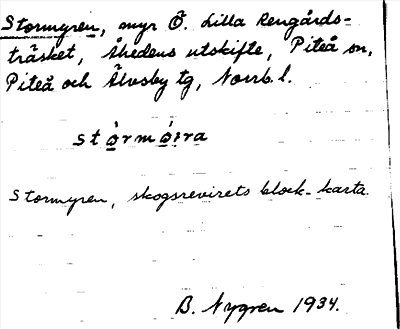 Stormyren, myr Ö. Lilla Rengårds-
träsket, Åhedens utskifte, Piteå sn,
Piteå och Älvsby tg, Norrb. l.
Stormyren, skogsrevirets block-karta.
B. Nygren 1934.